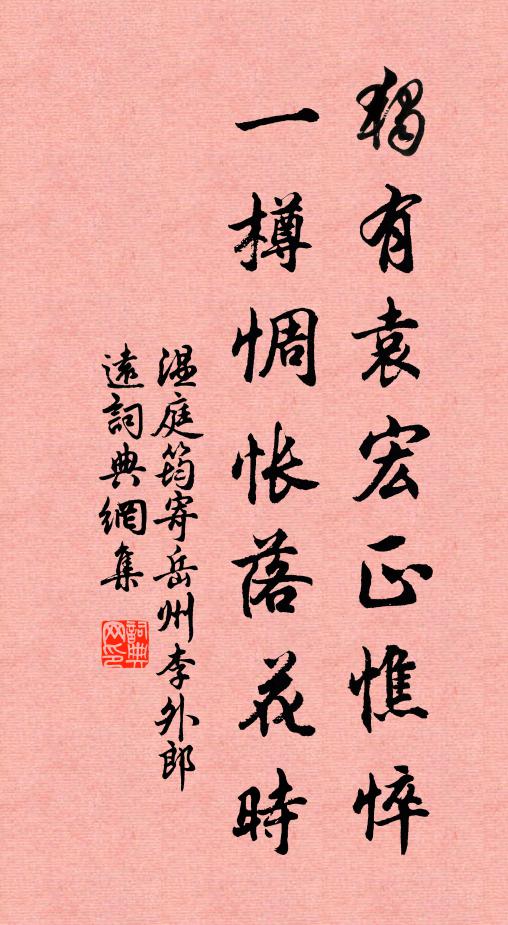 獨有袁宏正憔悴
一樽惆悵落花時
溫庭筠寄岳州李外郎
遠詞典網集
詞典
网印